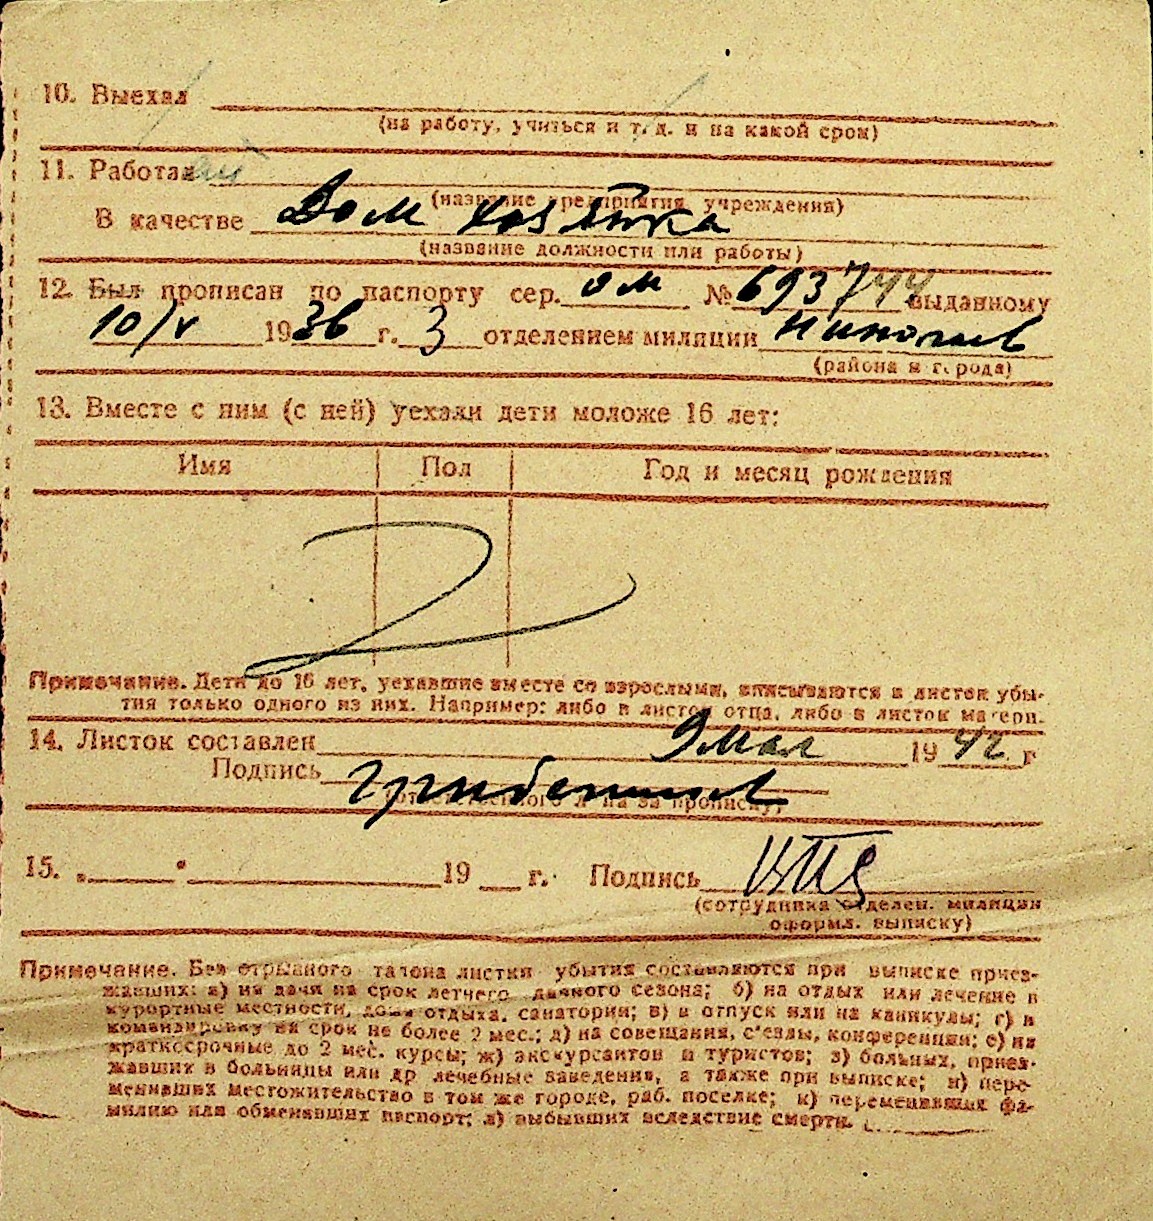 10. Выехал
(на работу, учиться и т. д. и на какой срок)
11. Работал
(название предприятия, учреждения)
В качестве Дом хозяйка
(название должности или работы)
12. Был прописан по паспорту сер. ом № 693744 выданному
10/V 1936 г. 3 отделением милиции
(района и города)
13. Вместе с ним (с ней) уехали дети моложе 16 лет:
Имя Пол Год и месяц рождения
Примечание. Дети до 16 лет, уехавшие вместе со взрослыми, вписываются в листок убы-
тия только одного из них. Например: либо в листок отца, либо в листок матери.
14. Листок составлен 9 мая 1942 г
Подпись
(ответственного лица за прописку)
15. „ “ 19 г. Подпись
(сотрудника отделен. милиции
оформл. выписку)
Примечание. Без отрывного талона листки убытия составляются при выписке приез-
жавших: а) на дачи на срок летнего дачного сезона; б) на отдых или лечение в
курортные местности, дома отдыха, санатории; в) в отпуск или на каникулы; г) в
командировку на срок не более 2 мес.; д) на совещания, с'езды, конференции; е) на
краткосрочные до 2 мес. курсы; ж) экскурсантов и туристов; з) больных, приез-
жавших в больницы или др лечебные заведения, а также при выписке; и) пере-
менивших местожительство в том же городе, раб. поселке; к) переменивших фа-
милию или обменявших паспорт; л) выбывших вследствие смерти.